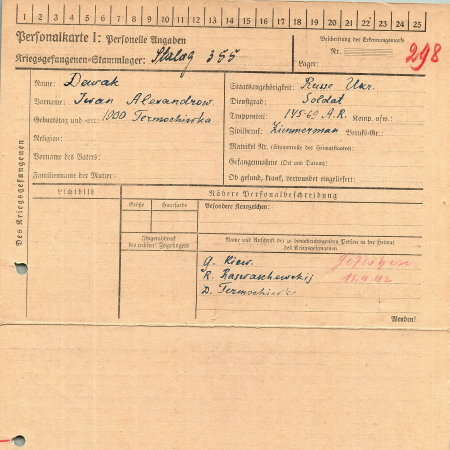 1 2 3 4 5 6 7 8 9 10 11 12 13 14 15 16 17 18 19 20 21 22 23 24 25
Personalkarte I: Personelle Angaben
Kriegsgefangenen-Stammlager: Stalag 355
Beschriftung der Erkennungsmarke
Nr.
298
Lager:
Des Kriegsgefangenen
Name: Dawak
Vorname: Iwan Alexandrow.
Geburtstag und -ort: 1900 Termochiwka
Religion:
Vorname des Vaters:
Familienname der Mutter:
Staatsangehörigkeit: Russe Ukr.
Dienstgrad: Soldat
Truppenteil: 145-69 A.R. Komp. usw.:
Zivilberuf: Zimmerman Berufs-Gr.:
Matrikel Nr. (Stammrolle des Heimatstaates):
Gefangennahme (Ort und Datum):
Ob gesund, krank, verwundet eingeliefert:
Lichtbild
Nähere Personalbeschreibung
Größe
Haarfarbe
Besondere Kennzeichen:
Fingerabdruck
des rechten Zeigefingers
Name und Anschrift der zu benachrichtigenden Person in der Heimat
des Kriegsgefangenen
G. Kiew.
R. Raswaschewskij
D. Termochiwka
11.4.42
Wenden!